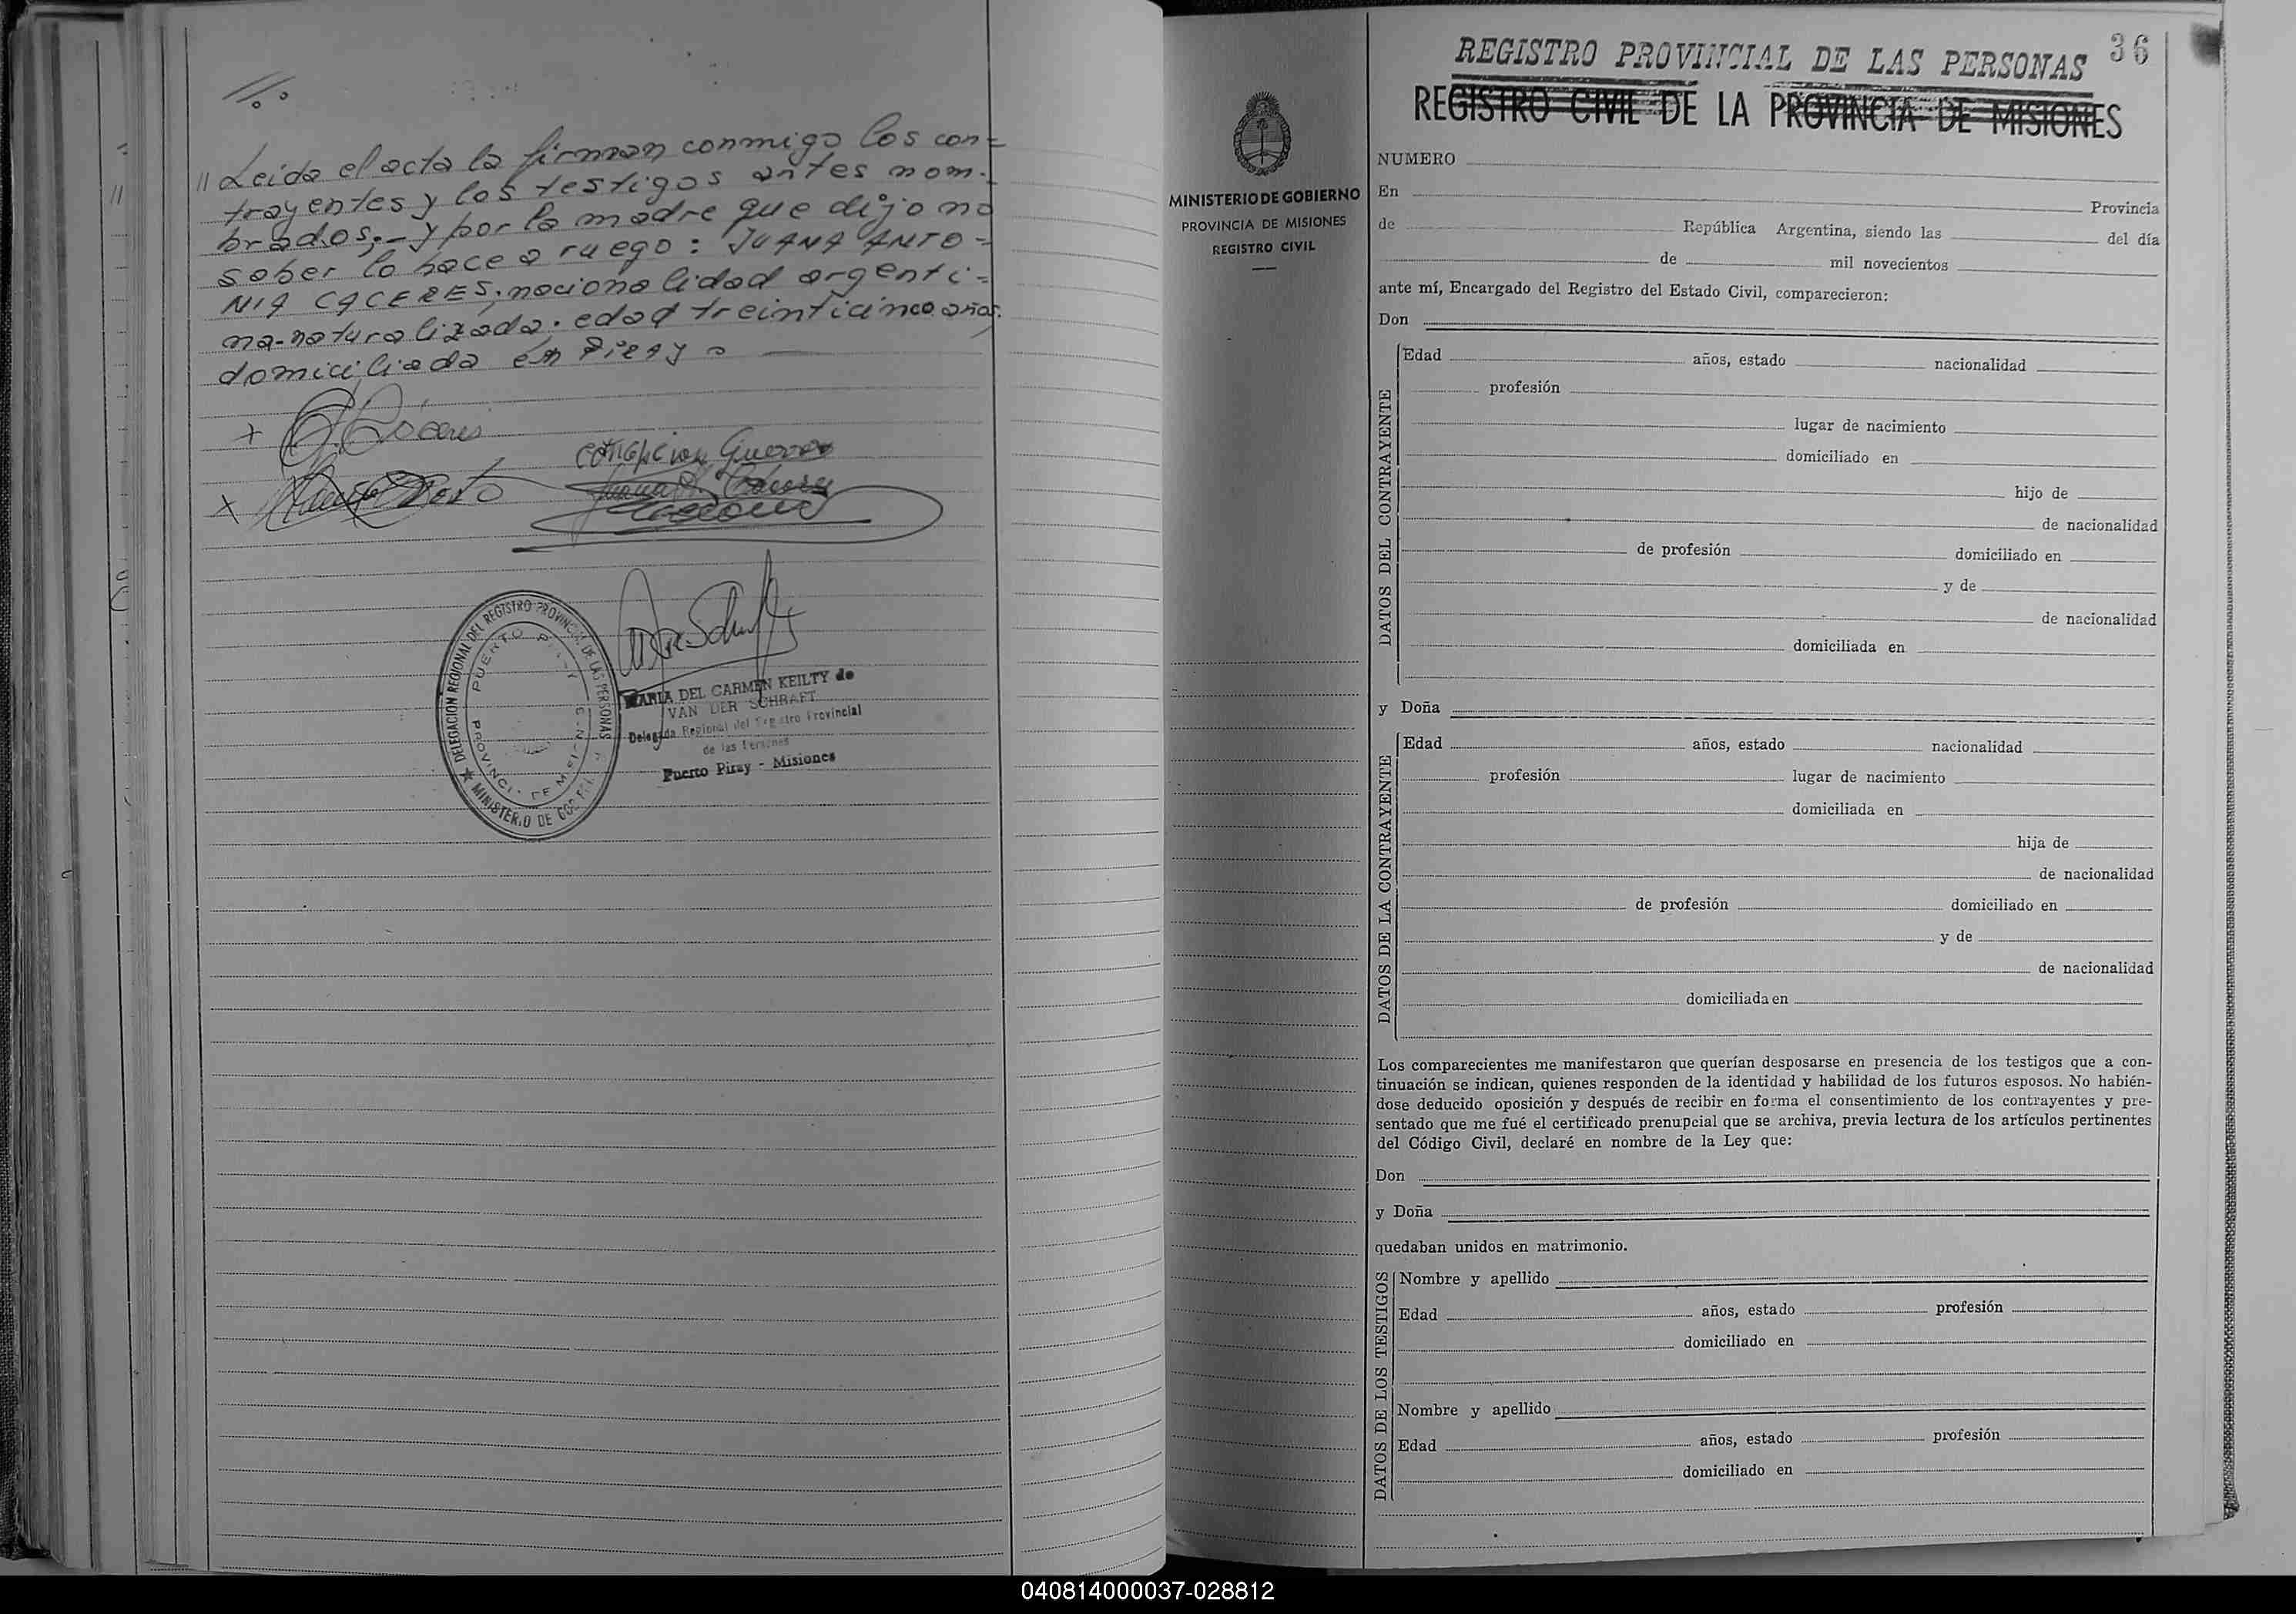 // Leida el acta la firman conmigo los con=
trayentes y los testigos antes nom.
brados,- y por la madre que dijo no
saber lo hace a ruego: JUANA ANTO=
NIA CACERES, nacionalidad argenti=
na-naturalizada. edad treinticinco años,
domiciliada en Piray
x Cáceres
Concepcion Guerrero
x
DELEGACION REGIONAL DEL REGISTRO PROVINCIAL DE LAS PERSONAS
PUERTO PIRAY
PROVINCIA DE MISIONES
★ MINISTERIO DE GOBIERNO
MARIA DEL CARMEN KEILTY de
VAN DER SCHRAFT
Delegada Regional del Registro Provincial
de las Personas
Puerto Piray - Misiones
36
REGISTRO PROVINCIAL DE LAS PERSONAS
REGISTRO CIVIL DE LA PROVINCIA DE MISIONES
MINISTERIO DE GOBIERNO
PROVINCIA DE MISIONES
REGISTRO CIVIL
NUMERO
En Provincia
de República Argentina, siendo las del día
de mil novecientos
ante mí, Encargado del Registro del Estado Civil, comparecieron:
Don
DATOS DEL CONTRAYENTE
Edad años, estado nacionalidad
profesión
lugar de nacimiento
domiciliado en
hijo de
de nacionalidad
de profesión domiciliado en
y de
de nacionalidad
domiciliada en
y Doña
DATOS DE LA CONTRAYENTE
Edad años, estado nacionalidad
profesión lugar de nacimiento
domiciliada en
hija de
de nacionalidad
de profesión domiciliado en
y de
de nacionalidad
domiciliada en
Los comparecientes me manifestaron que querían desposarse en presencia de los testigos que a con-
tinuación se indican, quienes responden de la identidad y habilidad de los futuros esposos. No habién-
dose deducido oposición y después de recibir en forma el consentimiento de los contrayentes y pre-
sentado que me fué el certificado prenupcial que se archiva, previa lectura de los artículos pertinentes
del Código Civil, declaré en nombre de la Ley que:
Don
y Doña
quedaban unidos en matrimonio.
DATOS DE LOS TESTIGOS
Nombre y apellido
Edad años, estado profesión
domiciliado en
Nombre y apellido
Edad años, estado profesión
domiciliado en
040814000037-028812